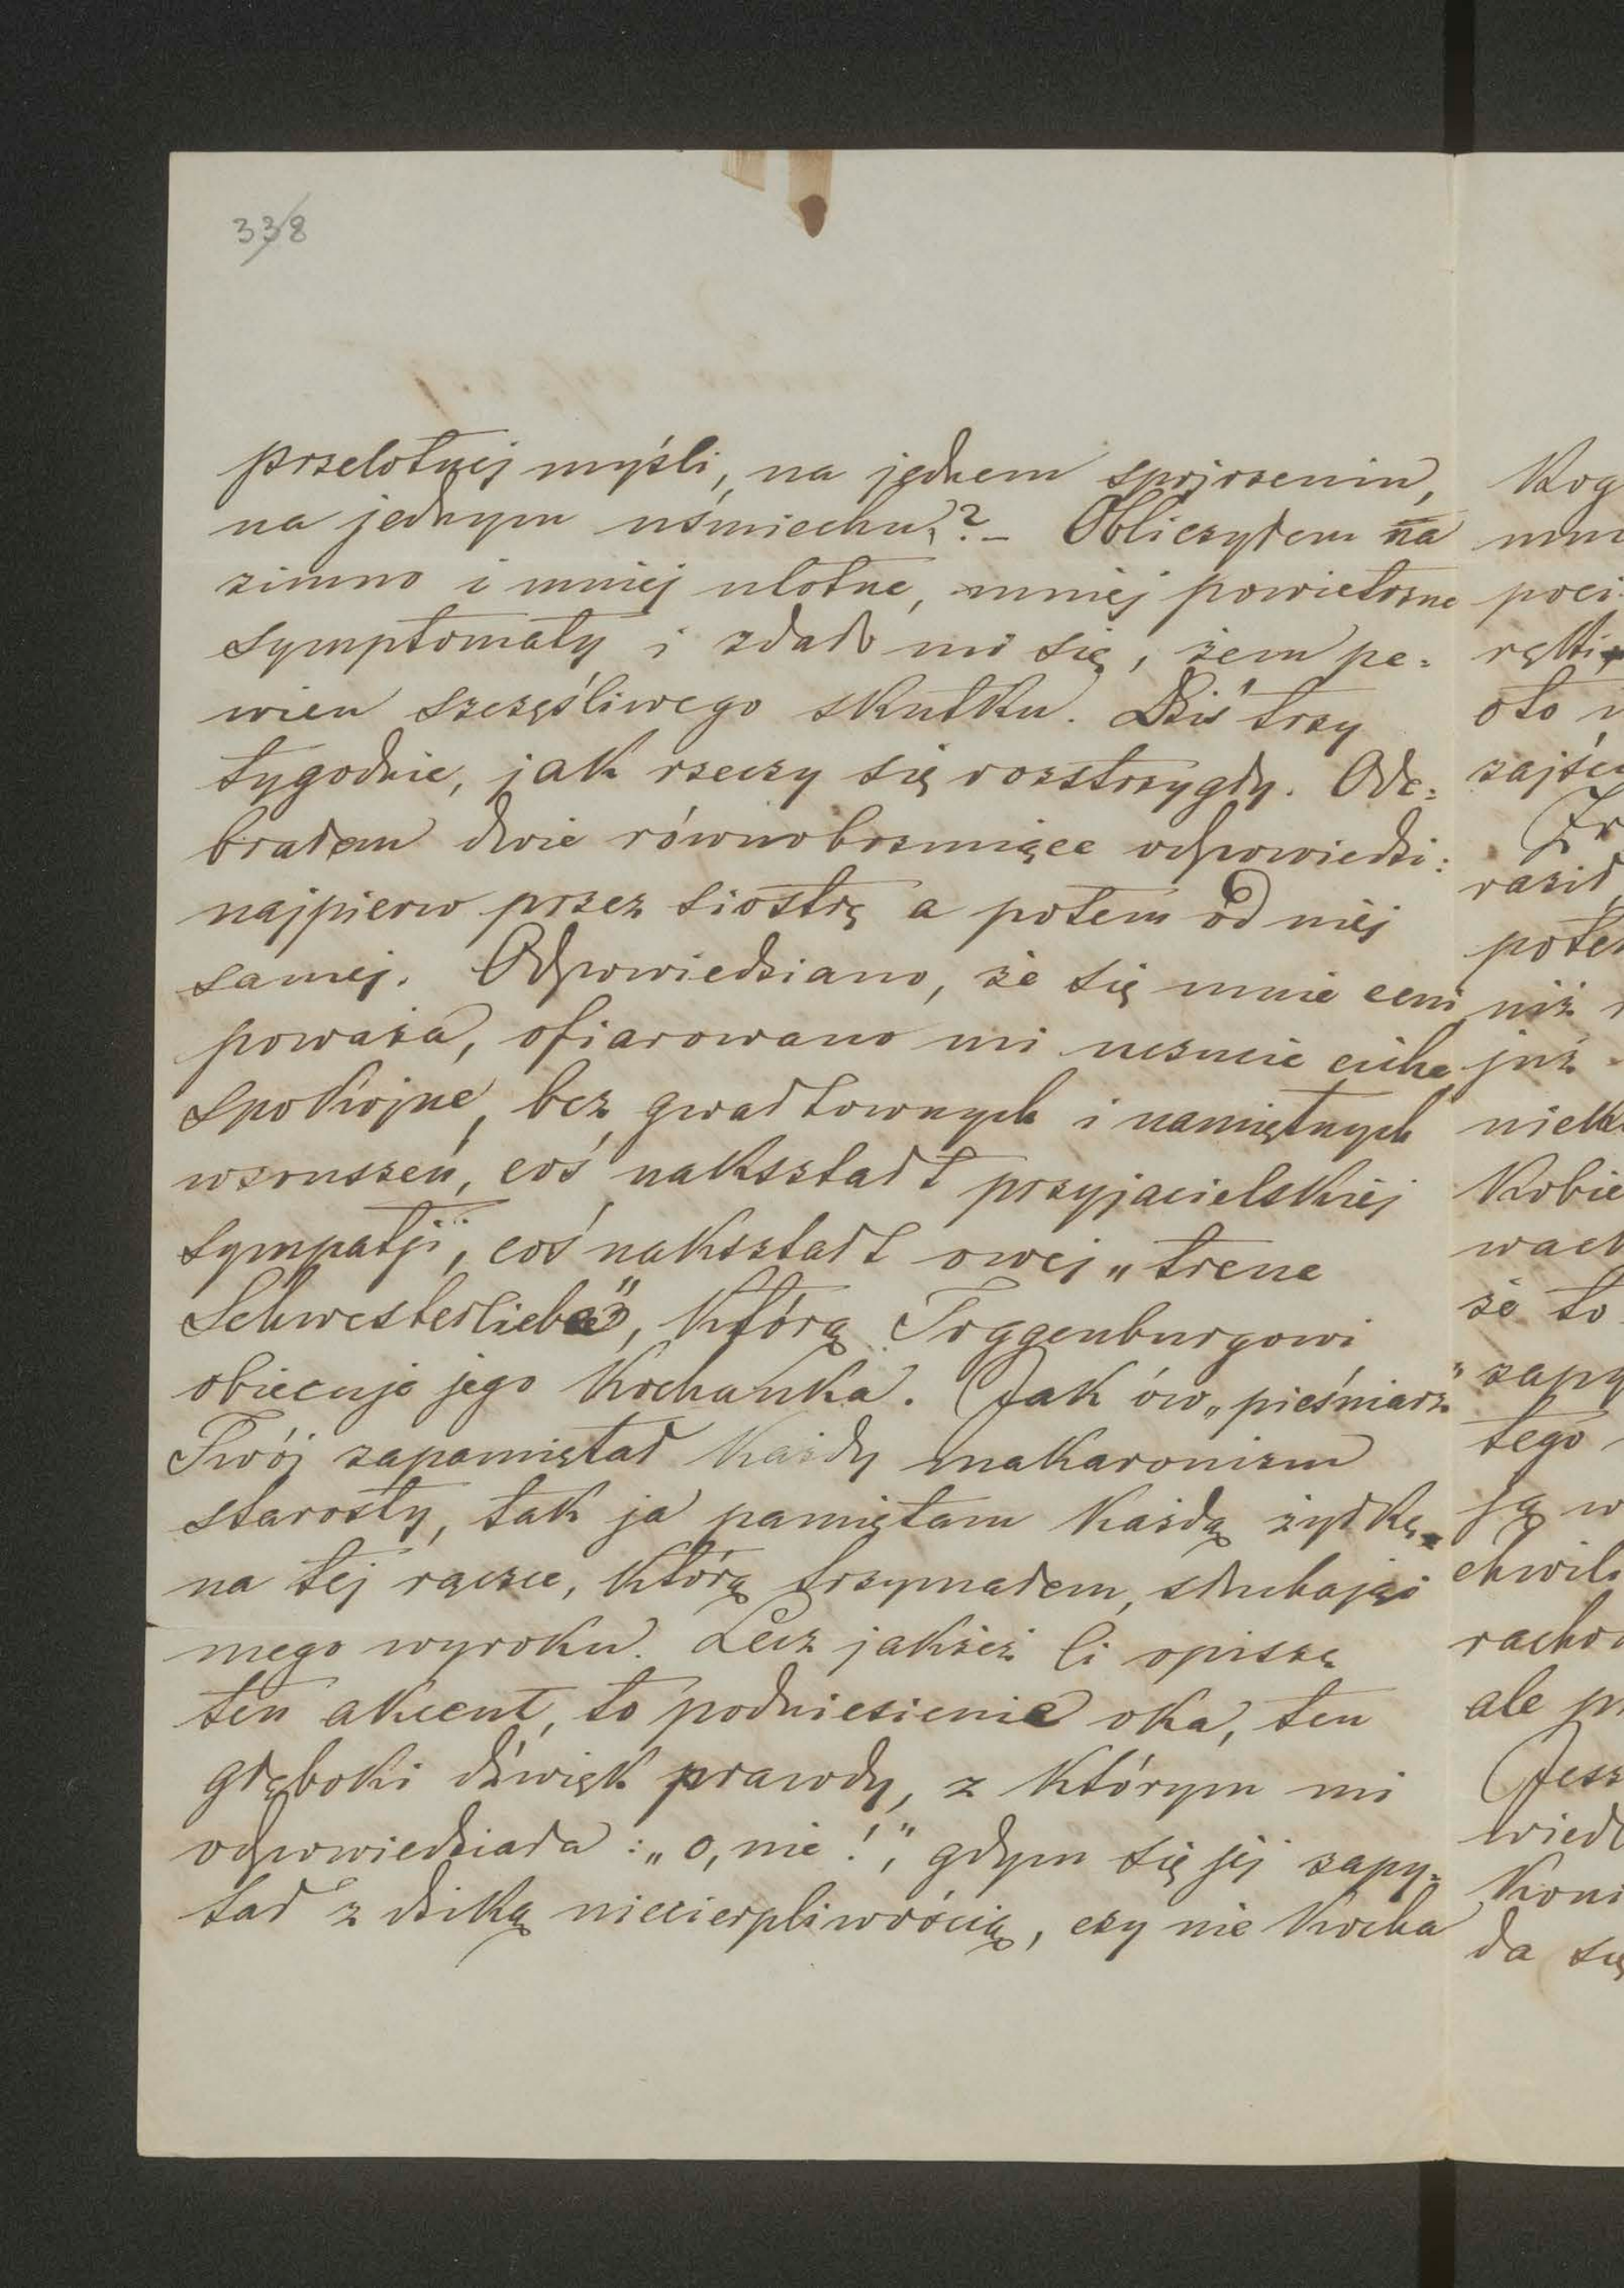 338
przelotnej myśli, na jednem spojrzeniu,
na jednym uśmiechu?– Obliczyłem na
zimno i mniej ulotne, mniej powietrzne
symptomaty i zdało mi się, żem pe=
wien szczęśliwego skutku. Dziś trzy
tygodnie, jak rzeczy się rozstrzygły. Ode=
brałem dwie równobrzmiące odpowiedzi:
najpierw przez siostrę a potem od niéj
saméj. Odpowiedziano, że się mnie ceni,
poważa, ofiarowano mi uczucie ciche,
spokojne, bez gwałtownych i namiętnych
wzruszeń, coś nakształt przyjacielskiéj
sympatji, coś nakształt owej „treue
Schwesterliebe”, którą Toggenburgowi
obiecuje jego kochanka. Jak ów „pieśniarz”
Twój zapamiętał każdy makaronizm
starosty, tak ja pamiętam każdą żyłkę
na tej rączce, którą trzymałem, słuchając
mego wyroku. Lecz jakżeż Ci opiszę
ten akcent, to podniesienie oka, ten
głęboki dźwięk prawdy, z którym mi
odpowiedziała: „o, nie!”, gdym się jéj zapy=
tał z dziką niecierpliwością, czy nie kocha
Kog
poci
oto
zajści
raził
poter
niż
już
Kobie
wach
że to
zapy
tego
ją w
chwil
racho
ale pr
Jesz
wiedz
Koni
da się